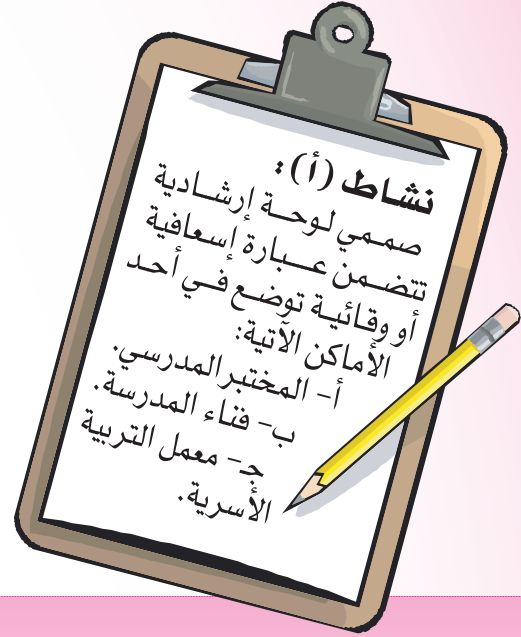 نشاط (أ):
صممي لوحة إرشادية
تتضمن عبارة إسعافية
أو وقائية توضع في أحد
الأماكن الآتية:
أ- المختبر المدرسي.
ب- فناء المدرسة.
جـ- معمل التربية
الأسرية.